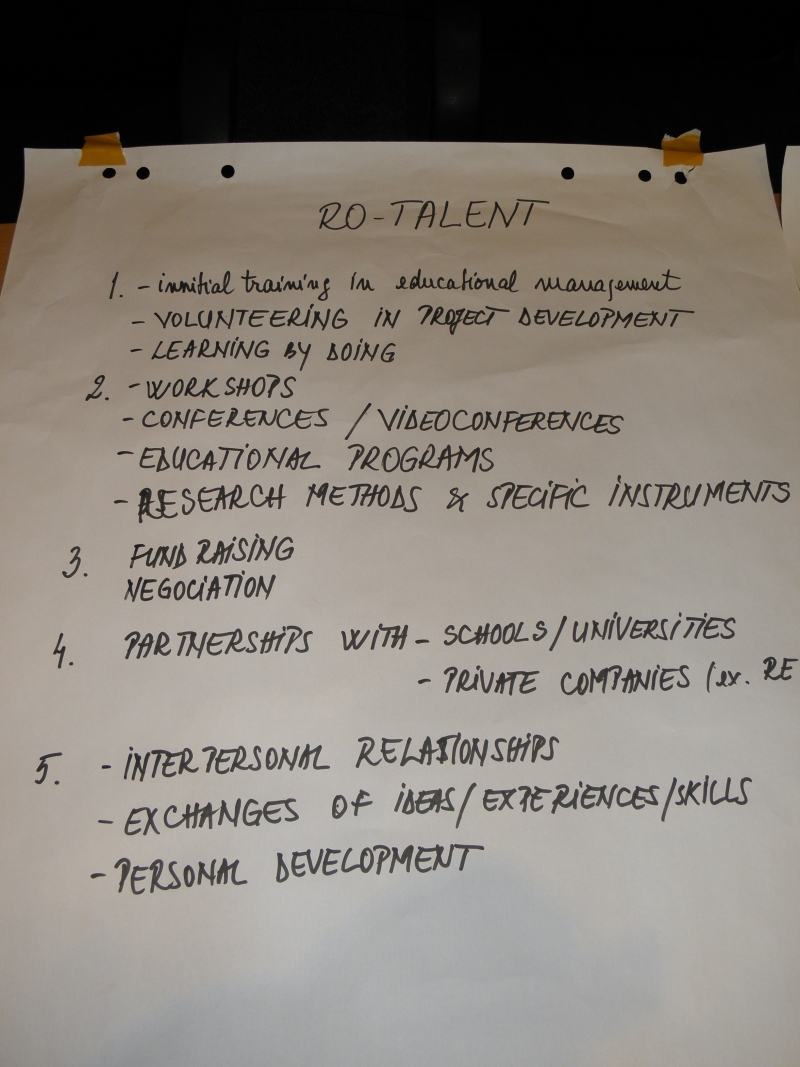 RO-TALENT
1. - innitial training in educational management
- VOLUNTEERING IN PROJECT DEVELOPMENT
- LEARNING BY DOING
2. - WORKSHOPS
- CONFERENCES / VIDEOCONFERENCES
- EDUCATIONAL PROGRAMS
- RESEARCH METHODS & SPECIFIC INSTRUMENTS
3. FUND RAISING
NEGOCIATION
4. PARTNERSHIPS WITH - SCHOOLS / UNIVERSITIES
- PRIVATE COMPANIES (ex. RE
5. - INTERPERSONAL RELATIONSHIPS
- EXCHANGES OF IDEAS / EXPERIENCES / SKILLS
- PERSONAL DEVELOPMENT